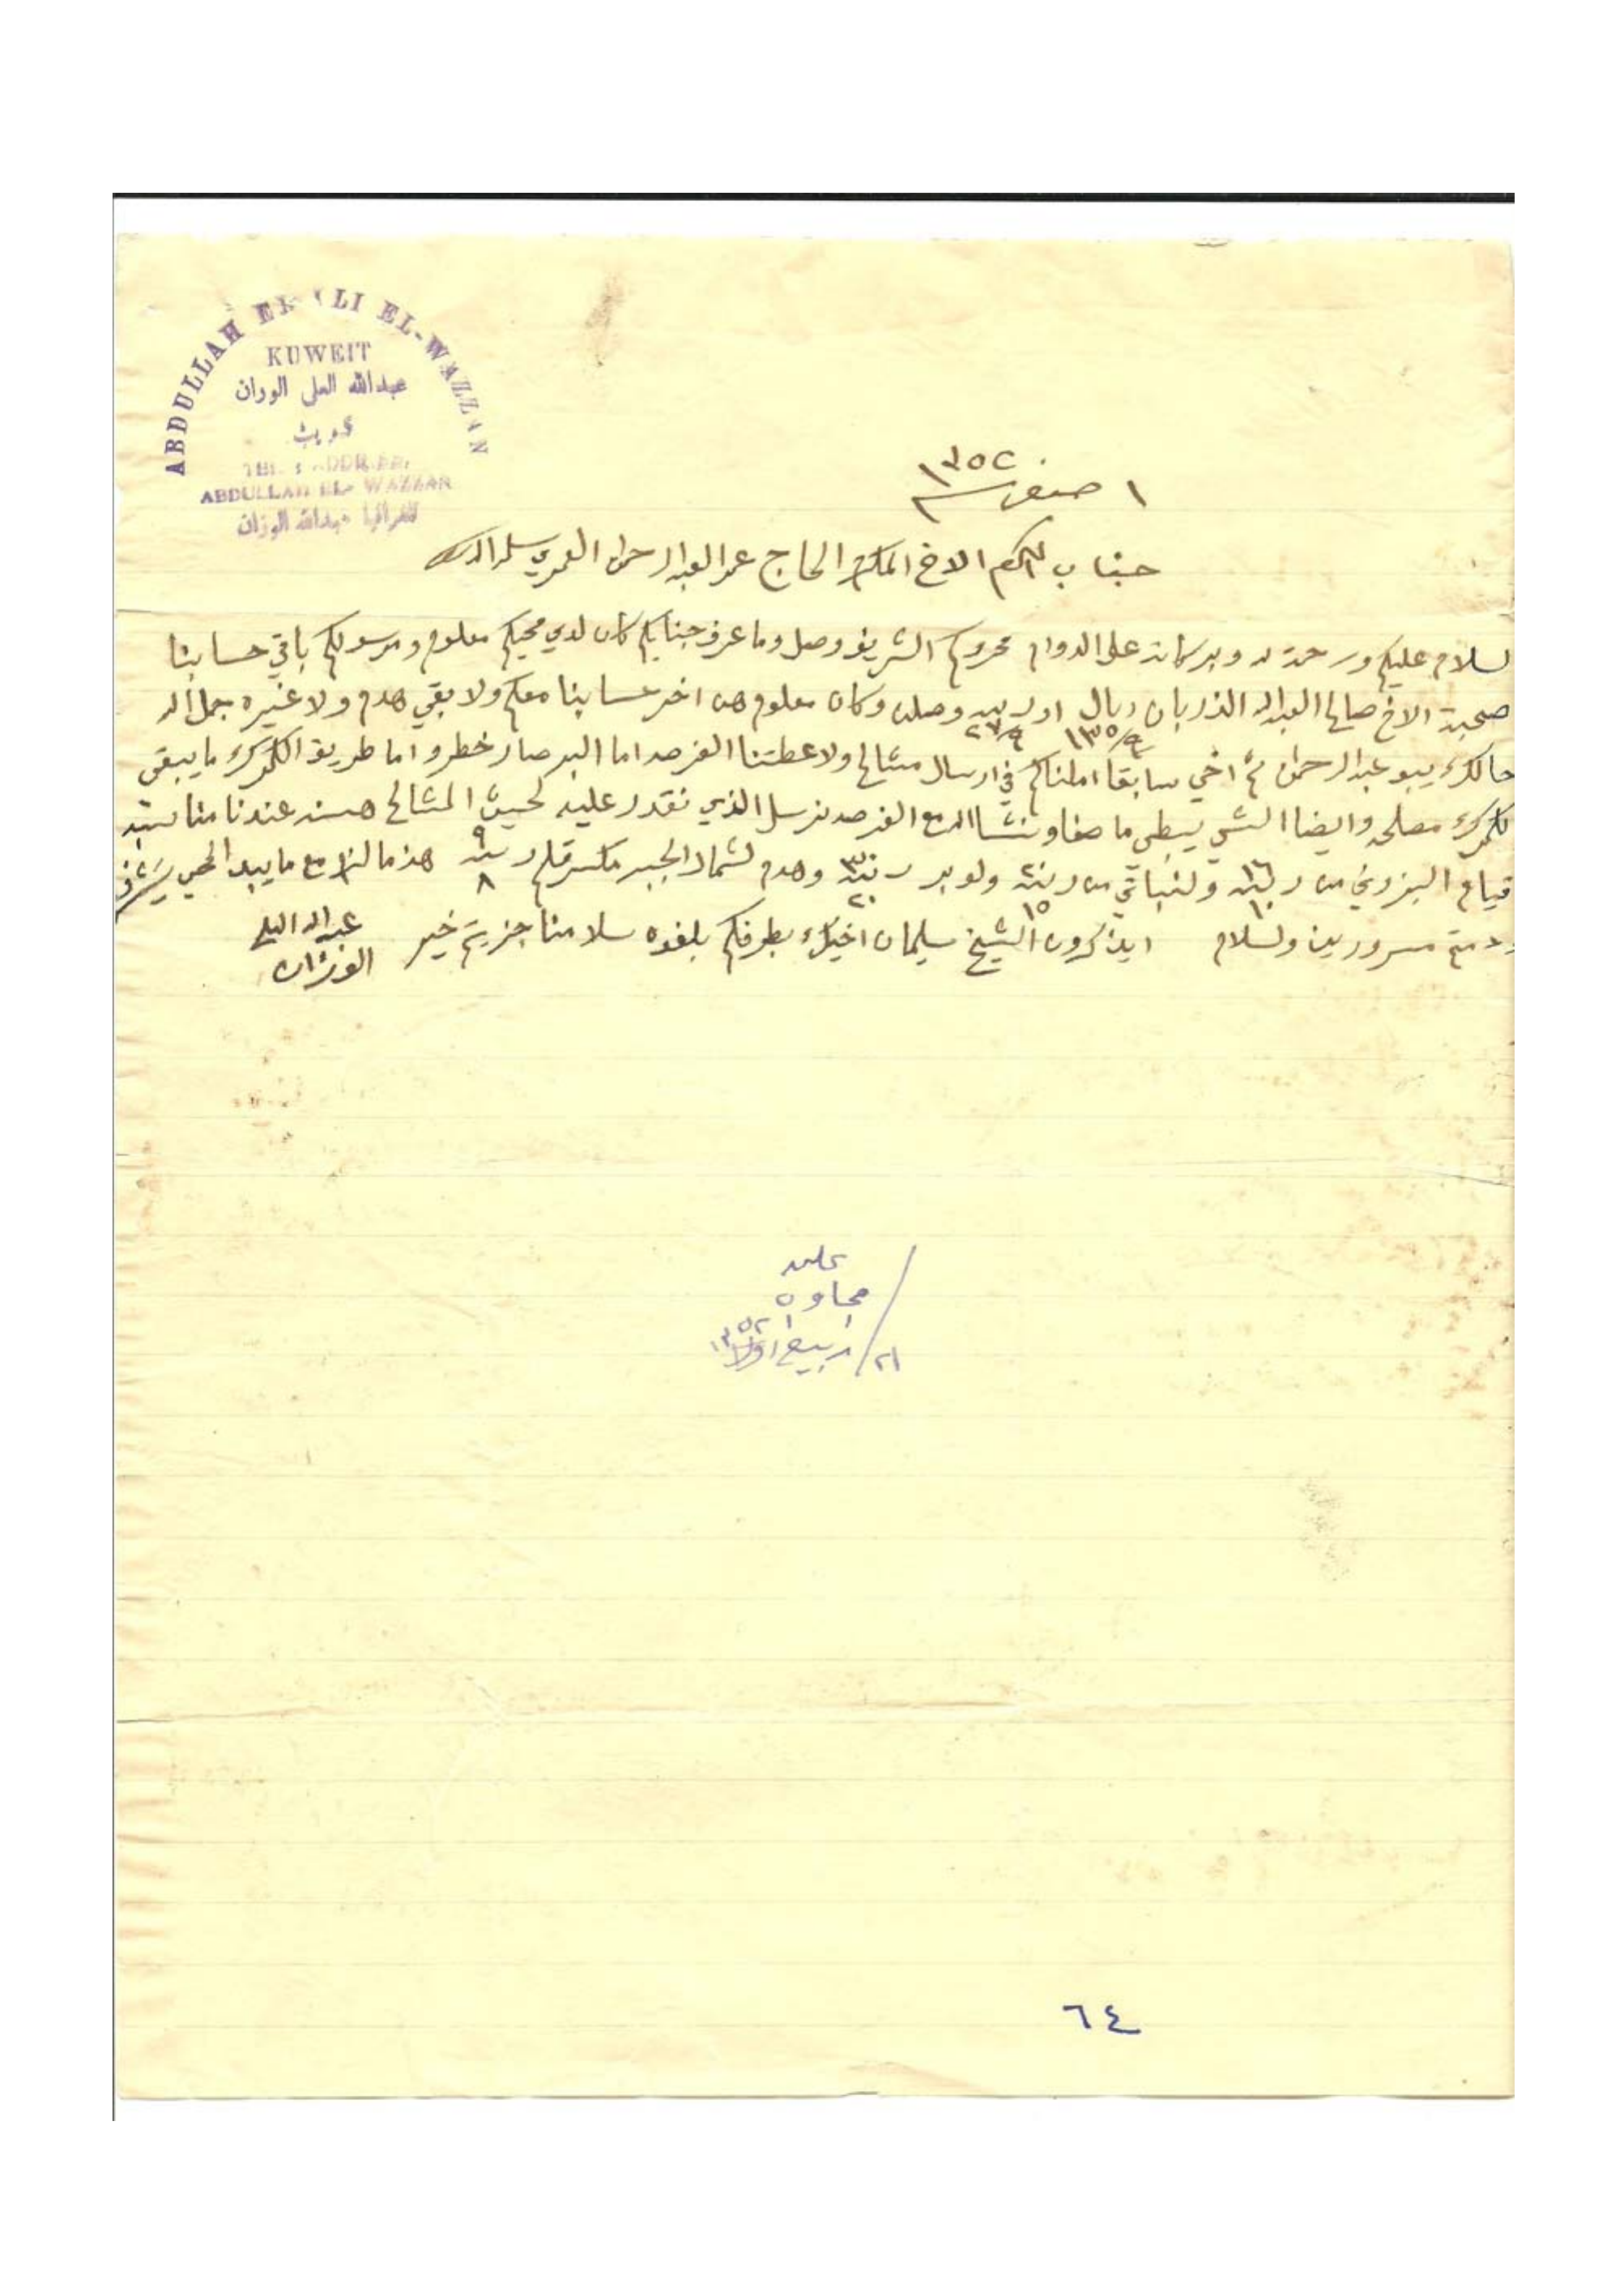 ABDULLAH EL ALI EL-WAZZAN
KUWEIT
عبدالله العلي الوزان
كويت
ABDULLAH EL- WAZZAN
تلغرافيا عبدالله الوزان
١ صفر سنة ١٣٥٢
جناب المكرم الاخ المكرم الحاج عمر العبدالرحمن العمري سلمه الله
لسلام عليكم ورحمة الله وبركاته على الدوام محروكم الشريف وصل وما عرف جنابكم كان لدى محبكم معلوم ومرسولكم باقي حسابنا
صحبة الاخ صالح العبدالله الذربان ريال اوربيه وصلن وكان معلوم هن اخر حسابنا معكم ولا بقي هدم ولا غيره جمل الله
١٣٥/٩ ٢٧/٩
حالكم يبو عبدالرحمن ثم اخي سابقا املناكم في ارسال مشالح ولا عطتنا الفرصه اما البر صار خطر واما طريق الكمرك ما يبقى
لكمرك مصلحه وايضا الشي يبطي ما صفا ونشاالله مع الفرصه نرسل الذي نقدر عليه لحيث المشالح هسنه عندنا متناسبه
قيام البزوني من ربيه ١٦ ١٠ ولنباتي من ربيه ٢٠ ١٥ ولوبر ربيه ٣٠ ٢٠ وهدم لشمال الجبر مكسر قلم ربيه ٩ ٨ هذا مالزم مع ما يبدا لمحب يشرف
ودمتم مسرورين ولسلام ايذكرون الشيخ سليمان اخيك بطرفكم بلغوه سلامنا جزيتم خير
عبدالله العلي
الوزان
عليه
مجاوب
٢١/ ربيع اول ١٣٥٢
٦٤